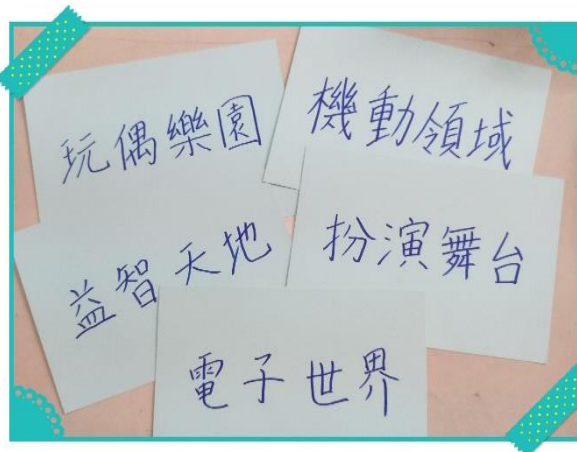 玩偶樂園
機動領域
益智天地
扮演舞台
電子世界